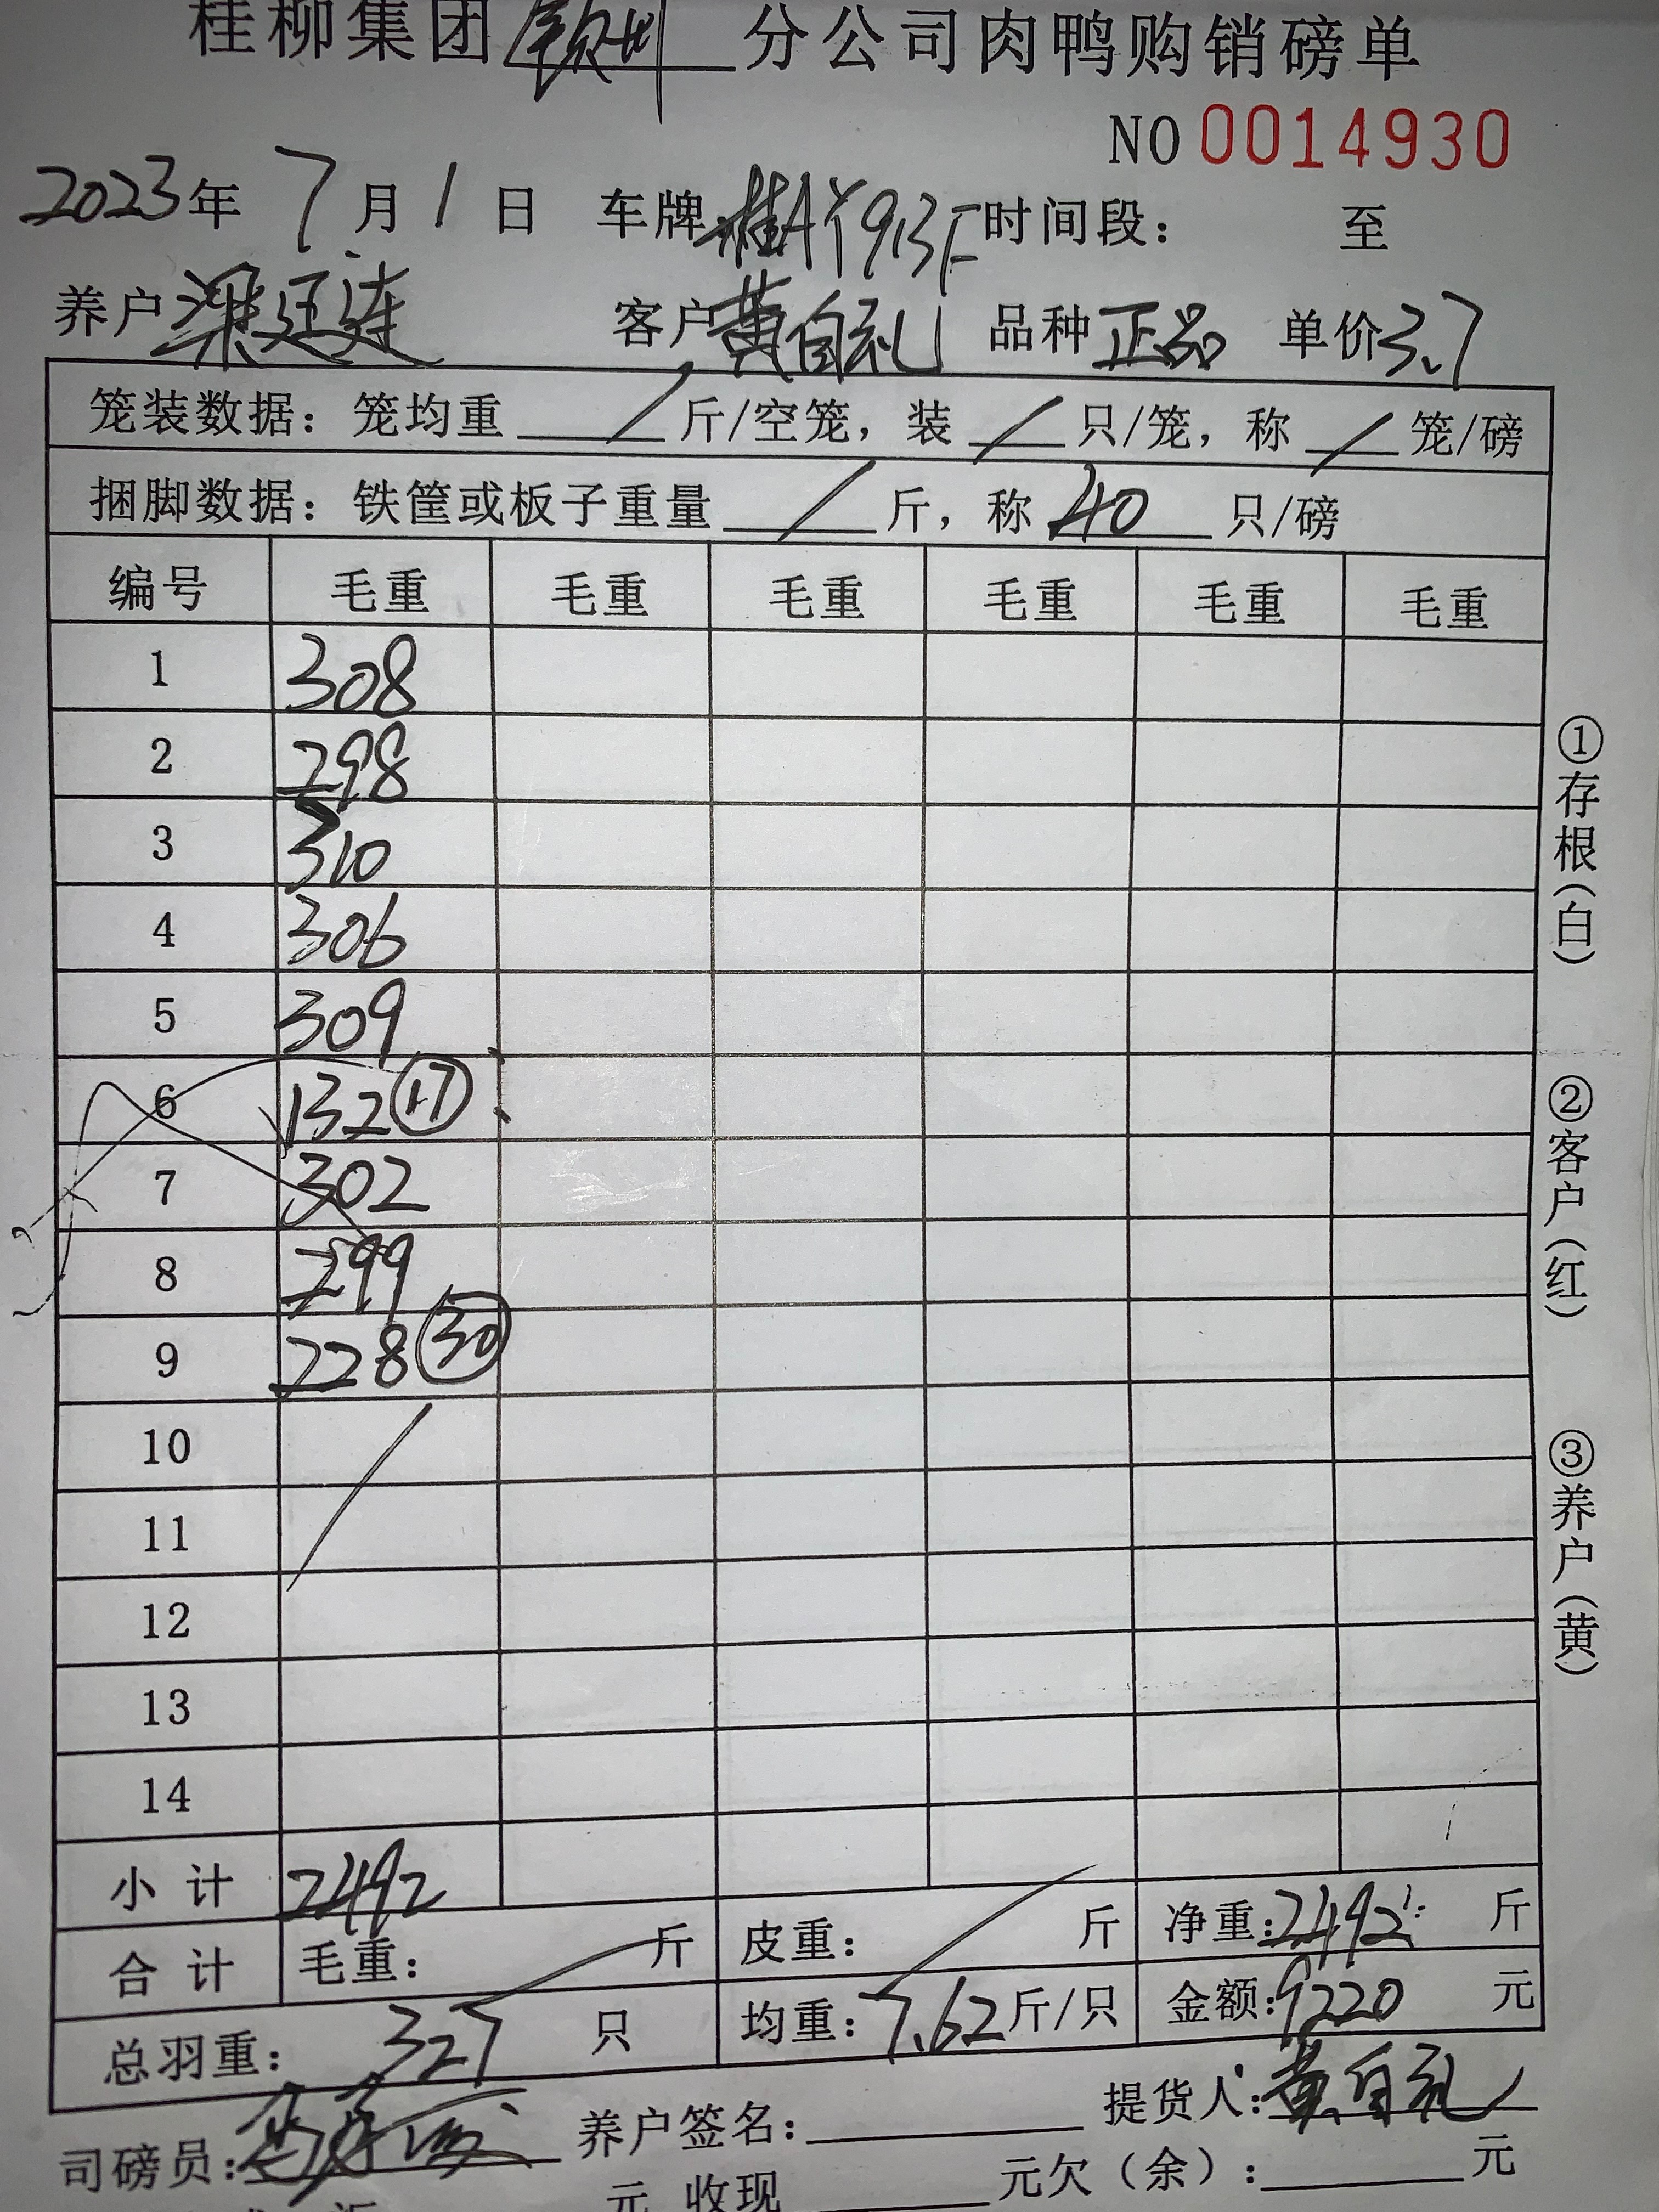 桂柳集团钦州分公司肉鸭购销磅单
NO 0014930
2023年 7月1日 车牌桂AY913F时间段： 至
养户梁廷连 客户黄自礼 品种正品 单价3.7
笼装数据：笼均重 / 斤/空笼，装 / 只/笼，称 / 笼/磅
捆脚数据：铁筐或板子重量 / 斤，称 40 只/磅
编号 毛重 毛重 毛重 毛重 毛重 毛重
1 308
2 298
3 310
4 306
5 309
6 132 ⑰
7 302
8 299
9 228 ㉚
10
11
12
13
14
小计 2492
合计 毛重： 斤 皮重： 斤 净重：2492 斤
总羽重：327 只 均重：7.62斤/只 金额：9220 元
司磅员： 养户签名： 提货人：黄自礼
元 收现 元欠（余）： 元
①存根（白）
②客户（红）
③养户（黄）